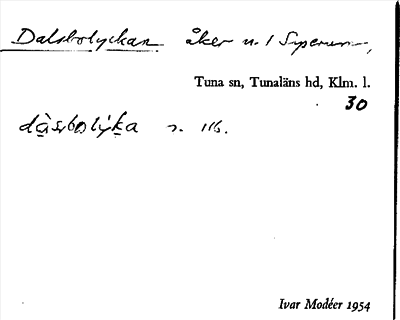 Dalsbolyckan åker n. 1 Syserum,
Tuna sn, Tunaläns hd, Klm. l.
30
dàsbolýka s. 116.
Ivar Modéer 1954